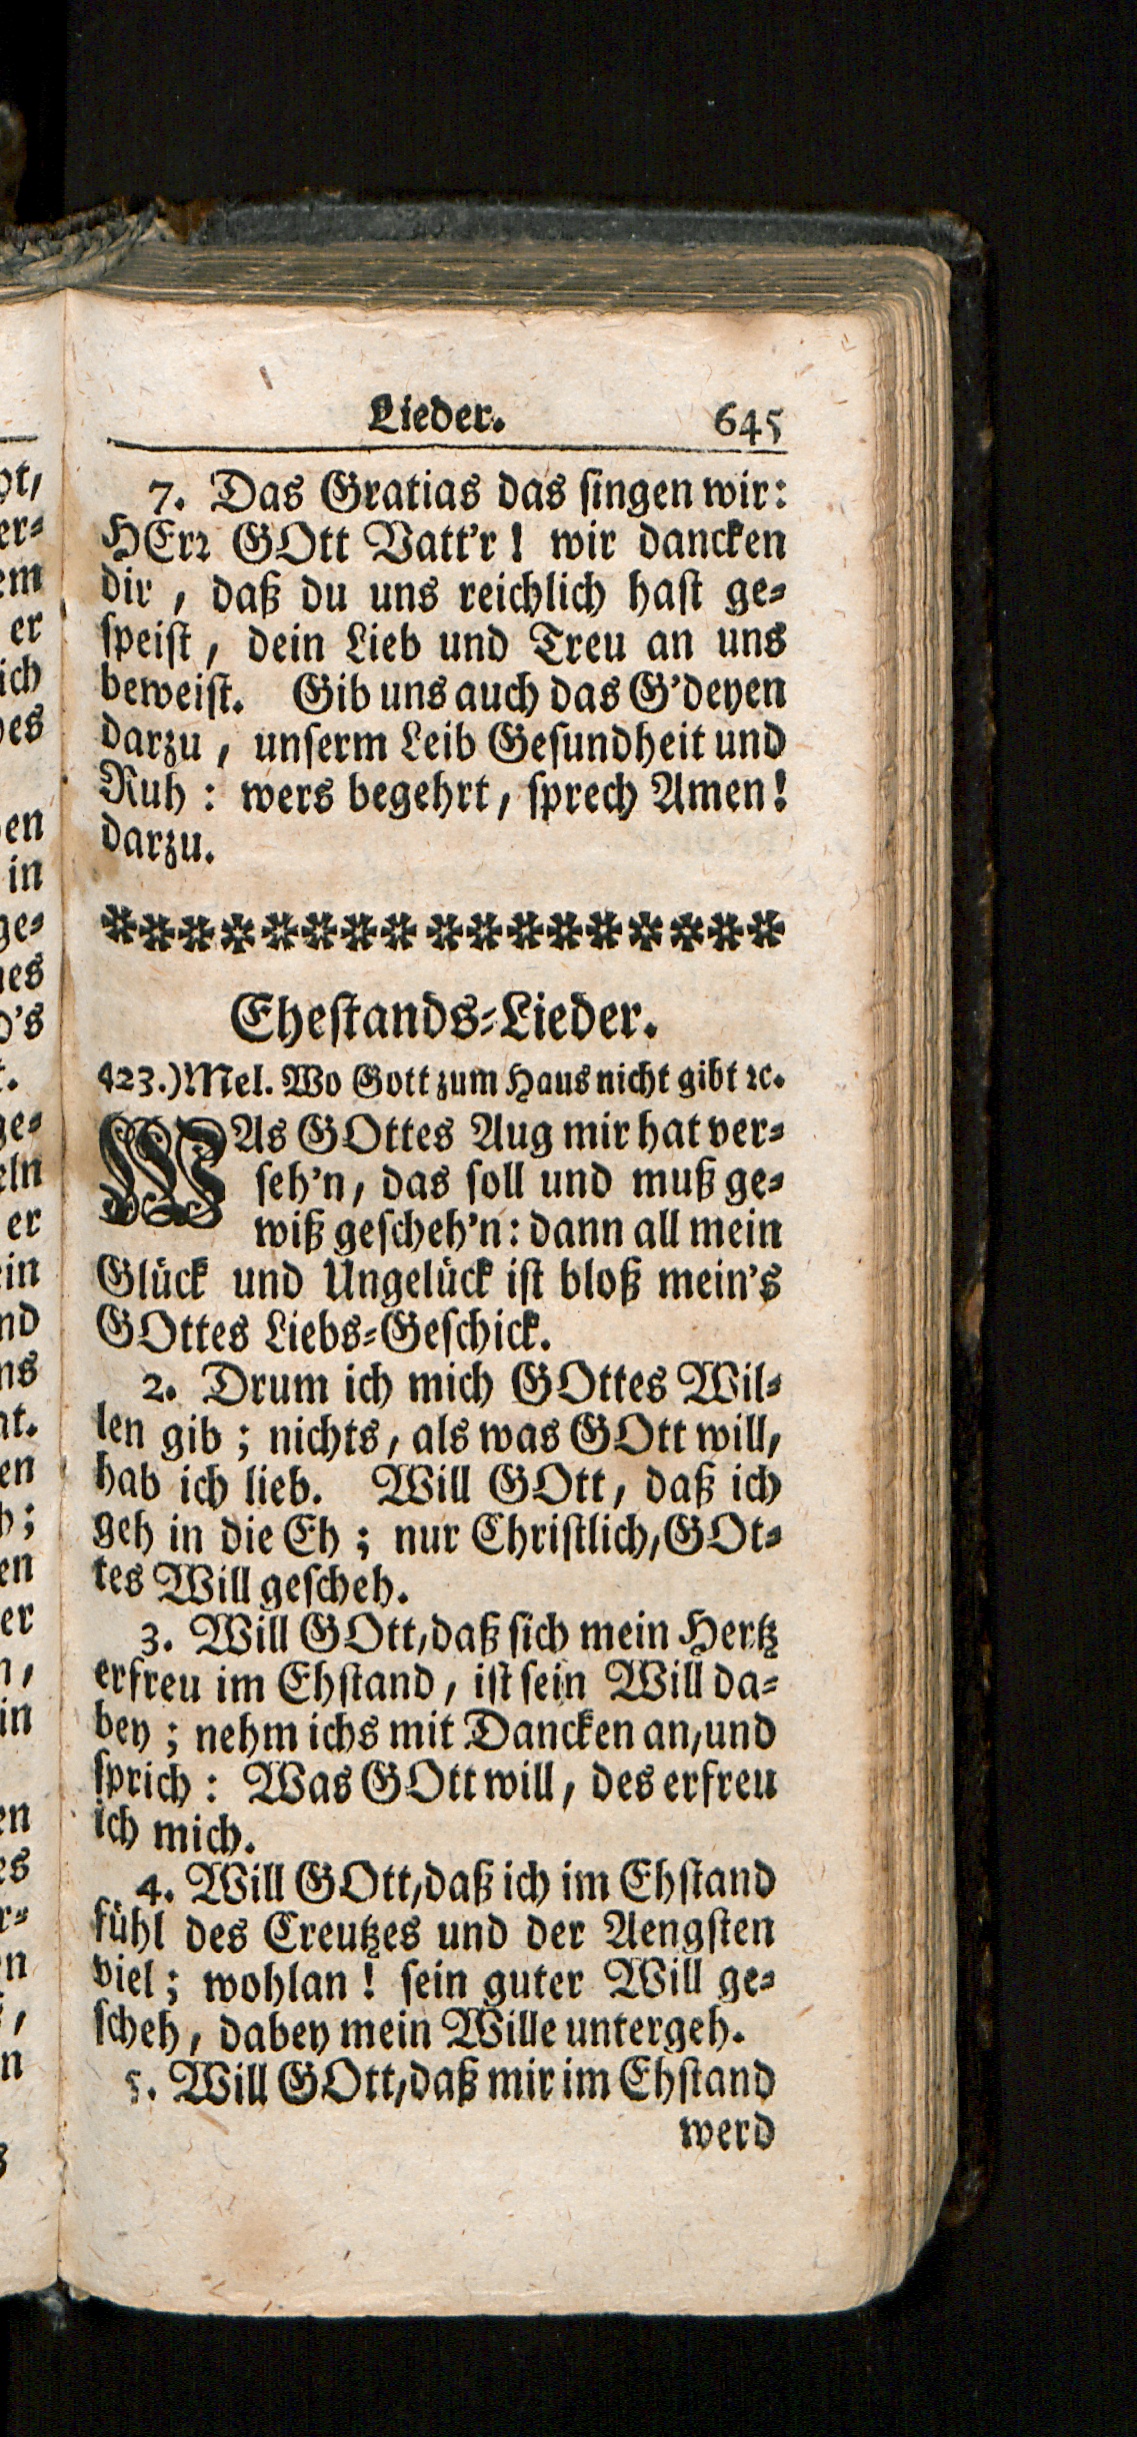 Lieder. 645
7. Das Gratias das singen wir:
HErr GOtt Vatt'r! wir dancken
dir, daß du uns reichlich hast ge-
speist, dein Lieb und Treu an uns
beweist. Gib uns auch das G'deyen
darzu, unserm Leib Gesundheit und
Ruh: wers begehrt, sprech Amen!
darzu.
Ehestands-Lieder.
423.) Mel. Wo Gott zum Haus nicht gibt ꝛc.
WAs GOttes Aug mir hat ver-
seh'n, das soll und muß ge-
wiß gescheh'n: dann all mein
Glück und Ungelück ist bloß mein's
GOttes Liebs-Geschick.
2. Drum ich mich GOttes Wil-
len gib; nichts, als was GOtt will,
hab ich lieb. Will GOtt, daß ich
geh in die Eh; nur Christlich, GOt-
tes Will gescheh.
3. Will GOtt, daß sich mein Hertz
erfreu im Ehstand, ist sein Will da-
bey; nehm ichs mit Dancken an, und
sprich: Was GOtt will, des erfreu
ich mich.
4. Will GOtt, daß ich im Ehstand
fühl des Creutzes und der Aengsten
viel; wohlan! sein guter Will ge-
scheh, dabey mein Wille untergeh.
5. Will GOtt, daß mir im Ehstand
werd